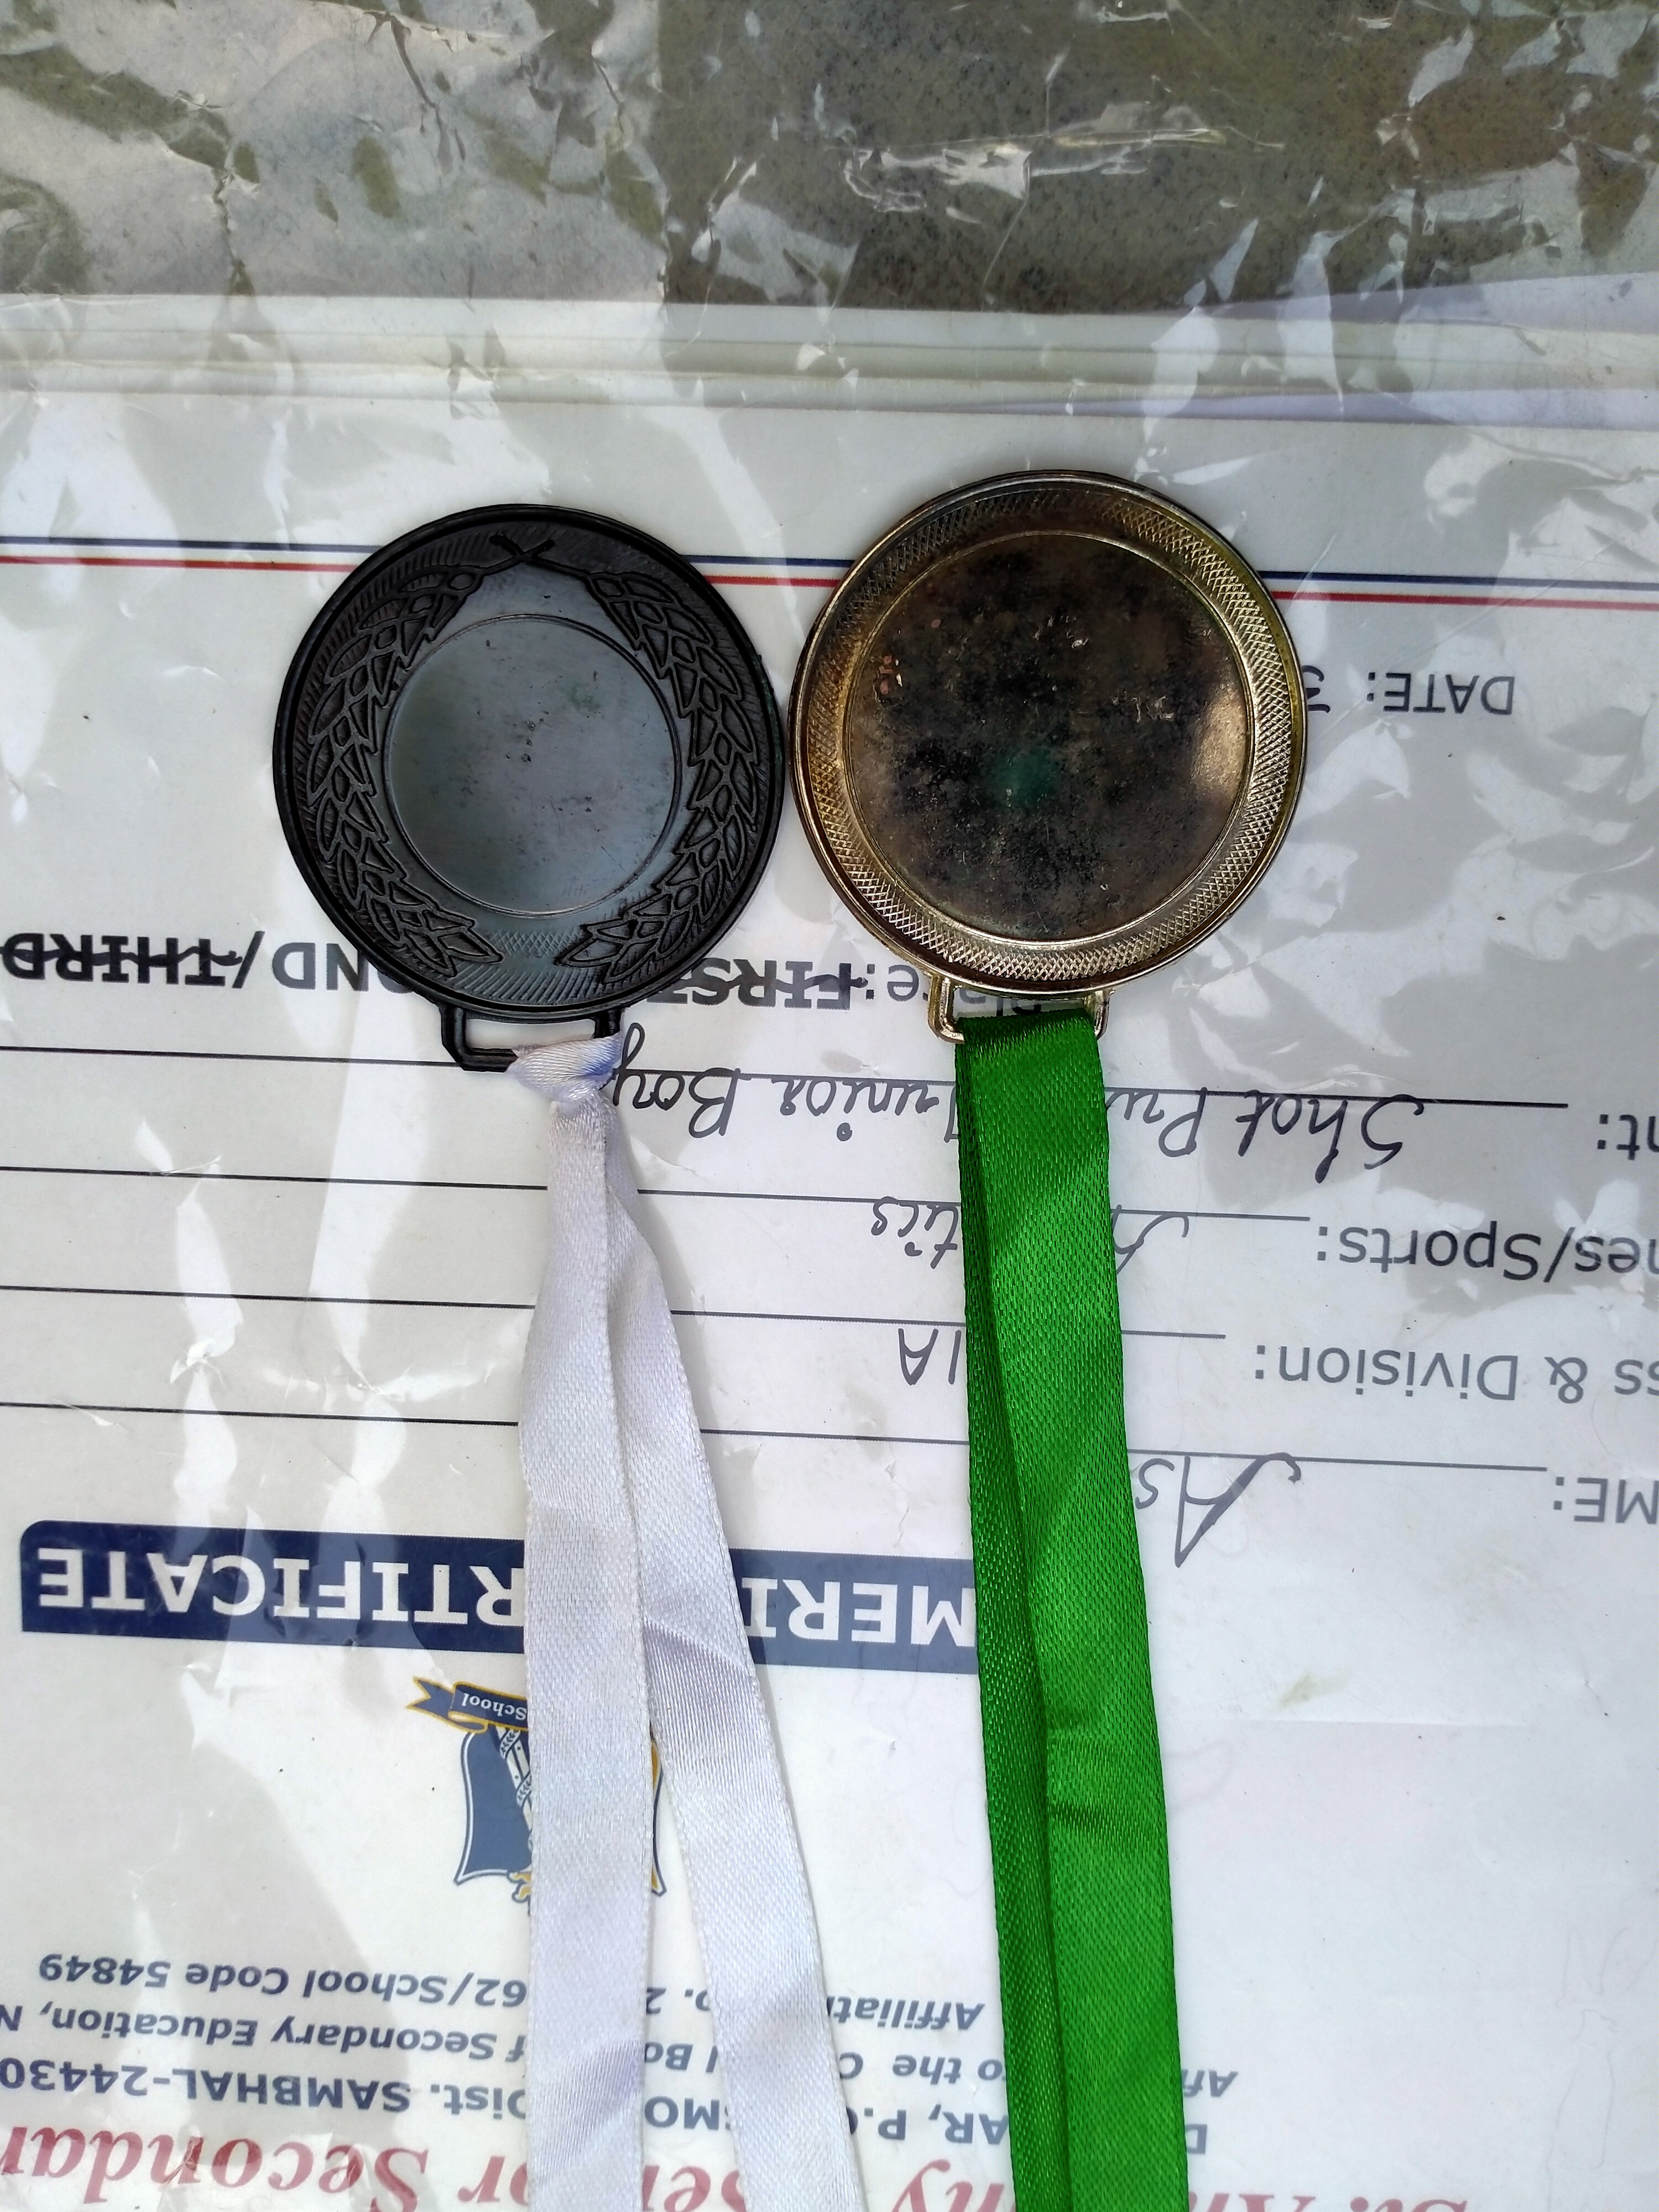 St. An ny Sen or Secondar
D AR, P. SMO Dist. SAMBHAL-24430
Af to the C l Bo f Secondary Education, N
Affiliati o. 2 62/School Code 54849
School
MERI RTIFICATE
ME: As
ss & Division: IA
mes/Sports: A tics
nt: Shot Pu Junior Boys
Place: FIRST OND/THIRD
DATE: 3